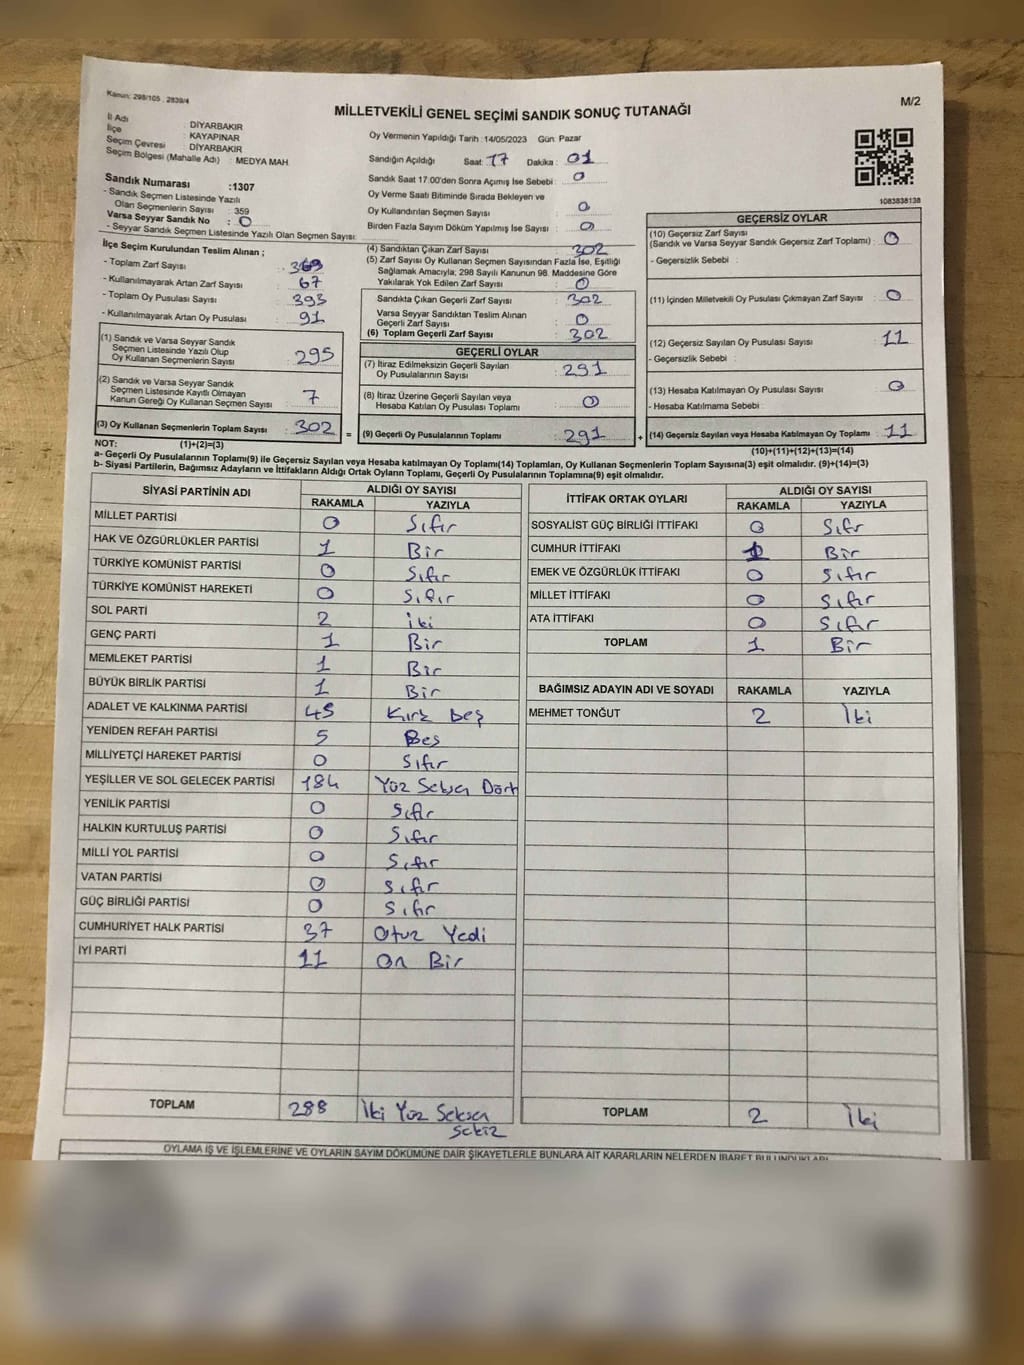 Kanun: 298/105 , 2839/4
MİLLETVEKİLİ GENEL SEÇİMİ SANDIK SONUÇ TUTANAĞI
M/2
İl Adı : DİYARBAKIR
İlçe : KAYAPINAR
Seçim Çevresi : DİYARBAKIR
Seçim Bölgesi (Mahalle Adı) : MEDYA MAH
Sandık Numarası :1307
- Sandık Seçmen Listesinde Yazılı
Olan Seçmenlerin Sayısı : 359
Varsa Seyyar Sandık No : 0
- Seyyar Sandık Seçmen Listesinde Yazılı Olan Seçmen Sayısı:
Oy Vermenin Yapıldığı Tarih :14/05/2023 Gün: Pazar
Sandığın Açıldığı Saat: 17 Dakika : 01
Sandık Saat 17:00'den Sonra Açımış İse Sebebi : 0
Oy Verme Saati Bitiminde Sırada Bekleyen ve
Oy Kullandırılan Seçmen Sayısı : 0
Birden Fazla Sayım Döküm Yapılmış İse Sayısı : 0
1083838138
İlçe Seçim Kurulundan Teslim Alınan ;
- Toplam Zarf Sayısı : 369
- Kullanılmayarak Artan Zarf Sayısı : 67
- Toplam Oy Pusulası Sayısı : 393
- Kullanılmayarak Artan Oy Pusulası : 91
(1) Sandık ve Varsa Seyyar Sandık
Seçmen Listesinde Yazılı Olup
Oy Kullanan Seçmenlerin Sayısı : 295
(2) Sandık ve Varsa Seyyar Sandık
Seçmen Listesinde Kayıtlı Olmayan
Kanun Gereği Oy Kullanan Seçmen Sayısı : 7
(3) Oy Kullanan Seçmenlerin Toplam Sayısı : 302 =
(4) Sandıktan Çıkan Zarf Sayısı : 302
(5) Zarf Sayısı Oy Kullanan Seçmen Sayısından Fazla İse, Eşitliği
Sağlamak Amacıyla; 298 Sayılı Kanunun 98. Maddesine Göre
Yakılarak Yok Edilen Zarf Sayısı : 0
Sandıkta Çıkan Geçerli Zarf Sayısı : 302
Varsa Seyyar Sandıktan Teslim Alınan
Geçerli Zarf Sayısı : 0
(6) Toplam Geçerli Zarf Sayısı : 302
GEÇERLİ OYLAR
(7) İtiraz Edilmeksizin Geçerli Sayılan
Oy Pusulalarının Sayısı : 291
(8) İtiraz Üzerine Geçerli Sayılan veya
Hesaba Katılan Oy Pusulası Toplamı : 0
(9) Geçerli Oy Pusulalarının Toplamı : 291 +
GEÇERSİZ OYLAR
(10) Geçersiz Zarf Sayısı
(Sandık ve Varsa Seyyar Sandık Geçersiz Zarf Toplamı) : 0
- Geçersizlik Sebebi :
(11) İçinden Milletvekili Oy Pusulası Çıkmayan Zarf Sayısı : 0
(12) Geçersiz Sayılan Oy Pusulası Sayısı : 11
- Geçersizlik Sebebi :
(13) Hesaba Katılmayan Oy Pusulası Sayısı : 0
- Hesaba Katılmama Sebebi :
(14) Geçersiz Sayılan veya Hesaba Katılmayan Oy Toplamı : 11
NOT: (1)+(2)=(3)
(10)+(11)+(12)+(13)=(14)
a- Geçerli Oy Pusulalarının Toplamı(9) ile Geçersiz Sayılan veya Hesaba katılmayan Oy Toplamı(14) Toplamları, Oy Kullanan Seçmenlerin Toplam Sayısına(3) eşit olmalıdır. (9)+(14)=(3)
b- Siyasi Partilerin, Bağımsız Adayların ve İttifakların Aldığı Ortak Oyların Toplamı, Geçerli Oy Pusulalarının Toplamına(9) eşit olmalıdır.
SİYASİ PARTİNİN ADI ALDIĞI OY SAYISI
RAKAMLA YAZIYLA
MİLLET PARTİSİ 0 Sıfır
HAK VE ÖZGÜRLÜKLER PARTİSİ 1 Bir
TÜRKİYE KOMÜNİST PARTİSİ 0 Sıfır
TÜRKİYE KOMÜNİST HAREKETİ 0 Sıfır
SOL PARTİ 2 iki
GENÇ PARTİ 1 Bir
MEMLEKET PARTİSİ 1 Bir
BÜYÜK BİRLİK PARTİSİ 1 Bir
ADALET VE KALKINMA PARTİSİ 45 Kırk beş
YENİDEN REFAH PARTİSİ 5 Beş
MİLLİYETÇİ HAREKET PARTİSİ 0 Sıfır
YEŞİLLER VE SOL GELECEK PARTİSİ 184 Yüz Seksen Dört
YENİLİK PARTİSİ 0 Sıfır
HALKIN KURTULUŞ PARTİSİ 0 Sıfır
MİLLİ YOL PARTİSİ 0 Sıfır
VATAN PARTİSİ 0 Sıfır
GÜÇ BİRLİĞİ PARTİSİ 0 Sıfır
CUMHURİYET HALK PARTİSİ 37 Otuz Yedi
İYİ PARTİ 11 On Bir
TOPLAM 288 İki Yüz Seksen
Sekiz
İTTİFAK ORTAK OYLARI ALDIĞI OY SAYISI
RAKAMLA YAZIYLA
SOSYALİST GÜÇ BİRLİĞİ İTTİFAKI 0 Sıfır
CUMHUR İTTİFAKI 1 Bir
EMEK VE ÖZGÜRLÜK İTTİFAKI 0 Sıfır
MİLLET İTTİFAKI 0 Sıfır
ATA İTTİFAKI 0 Sıfır
TOPLAM 1 Bir
BAĞIMSIZ ADAYIN ADI VE SOYADI RAKAMLA YAZIYLA
MEHMET TONĞUT 2 İki
TOPLAM 2 İki
OYLAMA İŞ VE İŞLEMLERİNE VE OYLARIN SAYIM DÖKÜMÜNE DAİR ŞİKAYETLERLE BUNLARA AİT KARARLARIN NELERDEN İBARET BULUNDUKLARI